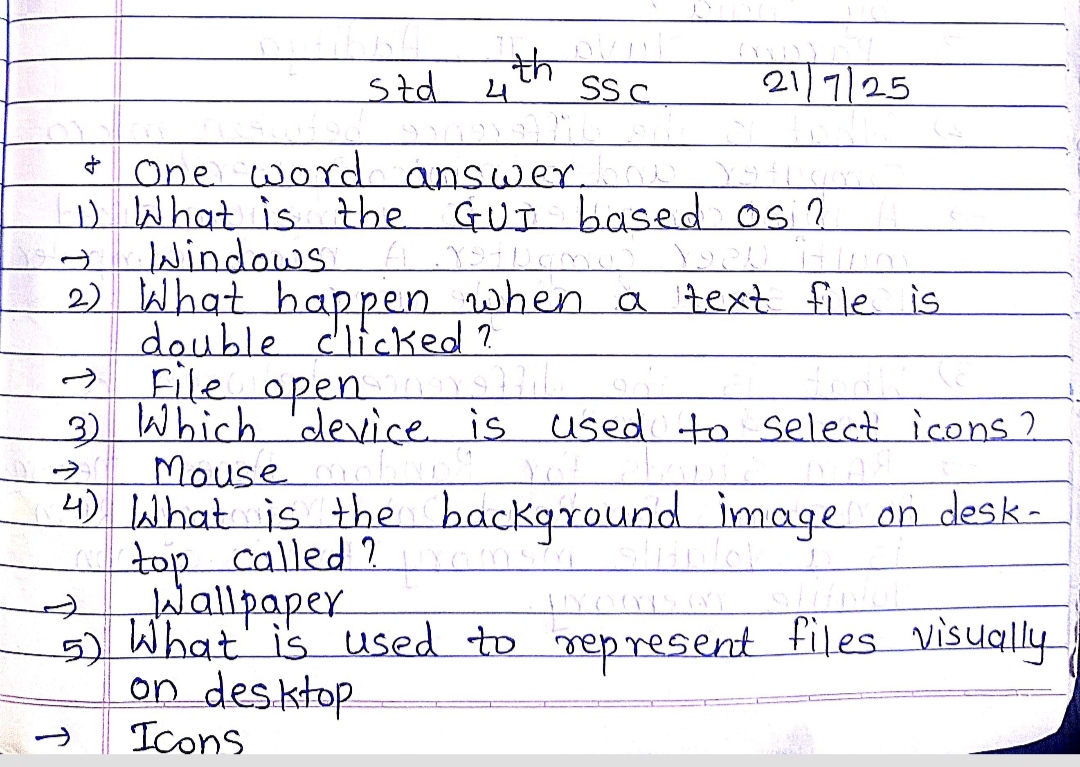 Std 4th SSC 21/7/25
* One word answer.
1) What is the GUI based OS?
→ Windows
2) What happen when a text file is
double clicked?
→ File open
3) Which device is used to select icons?
→ Mouse
4) What is the background image on desk-
top called?
→ Wallpaper
5) What is used to represent files visually
on desktop
→ Icons